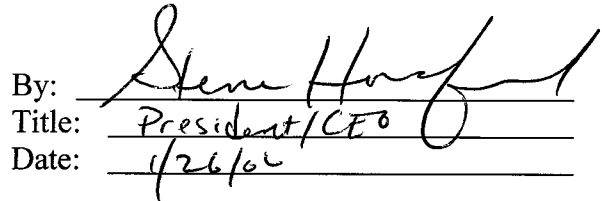 By: Steve Horsford
Title: President/CEO
Date: 1/26/06